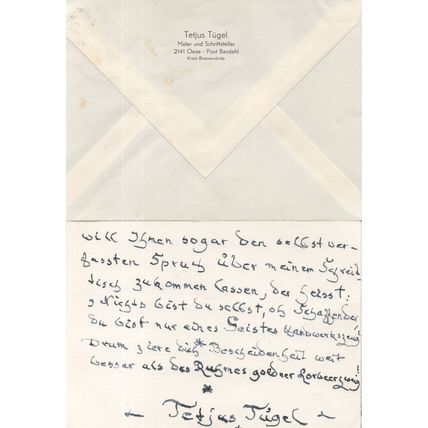 Tetjus Tügel
Maler und Schriftsteller
2141 Oese - Post Basdahl
Kreis Bremervörde
will Ihnen sogar den selbstver-
fassten Spruch über meinem Schreib-
tisch zukommen lassen, der heisst:
"Nichts bist du selbst, oh Schaffender
du bist nur eines Geistes Handwerkszeug
Drum ziere dich Bescheidenheit weit
besser als des Ruhmes goldner Lorbeerzweig"
*
- Tetjus Tügel -